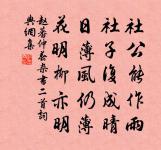 社公能作雨
社子復成晴
日薄風仍薄
花明柳亦明
趙蕃仲春杂書二首詞
典網集